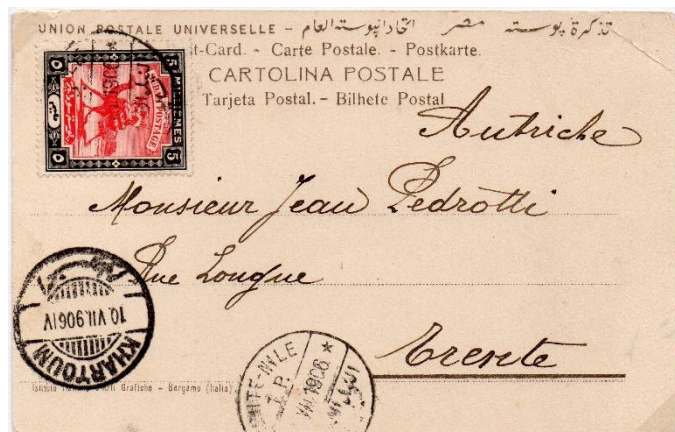 UNION POSTALE UNIVERSELLE - اتحاد البوسته العام مصر تذكرة بوسته
t-Card. - Carte Postale. - Postkarte.
CARTOLINA POSTALE
Tarjeta Postal. - Bilhete Postal
5 MILLIEMES 5
SUDAN POSTAGE
Autriche
Monsieur Jean Pedrotti
Rue Longue
Trente
KHARTOUM
10.VII.906 IV
WHITE-NILE
T. P.
VII 1906 *
Grafiche - Bergamo (Italia)